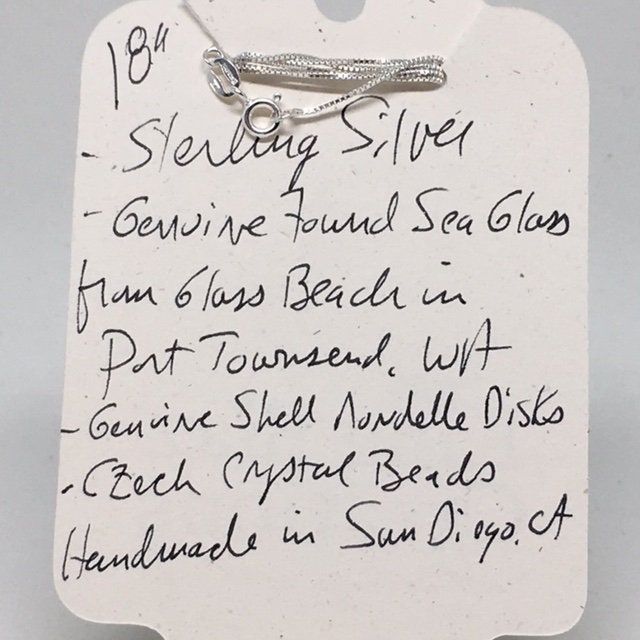 18"
- Sterling Silver
- Genuine Found Sea Glass
from Glass Beach in
Port Townsend, WA
- Genuine Shell Rondelle Disks
- Czech Crystal Beads
Handmade in San Diego, CA